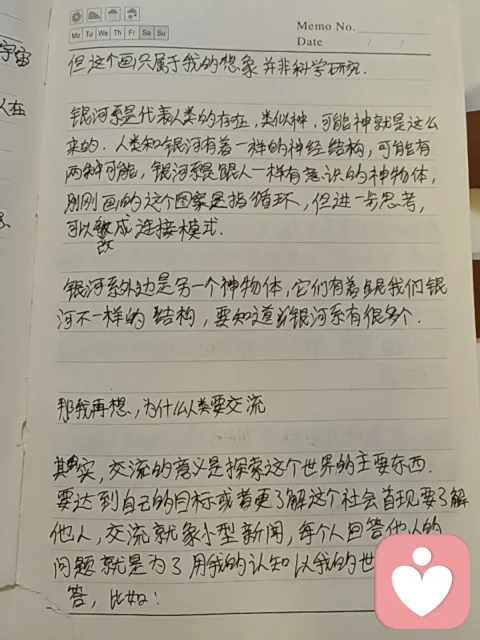 Memo No.
Mo Tu We Th Fr Sa Su
Date / /
宇宙
人在
但这个画只属于我的想象并非科学研究.
银河系是代表人类的存在,类似神,可能神就是这么
来的.人类和银河有着一样的神经结构,可能有
两种可能,银河系是跟人一样有意识的神物体,
刚刚画的这个图案是指循环,但进一步思考,
可以改成连接模式.
银河系外边是另一个神物体,它们有着跟我们银
河不一样的结构,要知道银河系有很多个.
那我再想,为什么人类要交流
其实,交流的意义是探索这个世界的主要东西.
要达到自己的目标或者更了解这个社会首现要了解
他人,交流就象小型新闻,每个人回答他人的
问题就是为了用我的认知以我的世
答,比如: